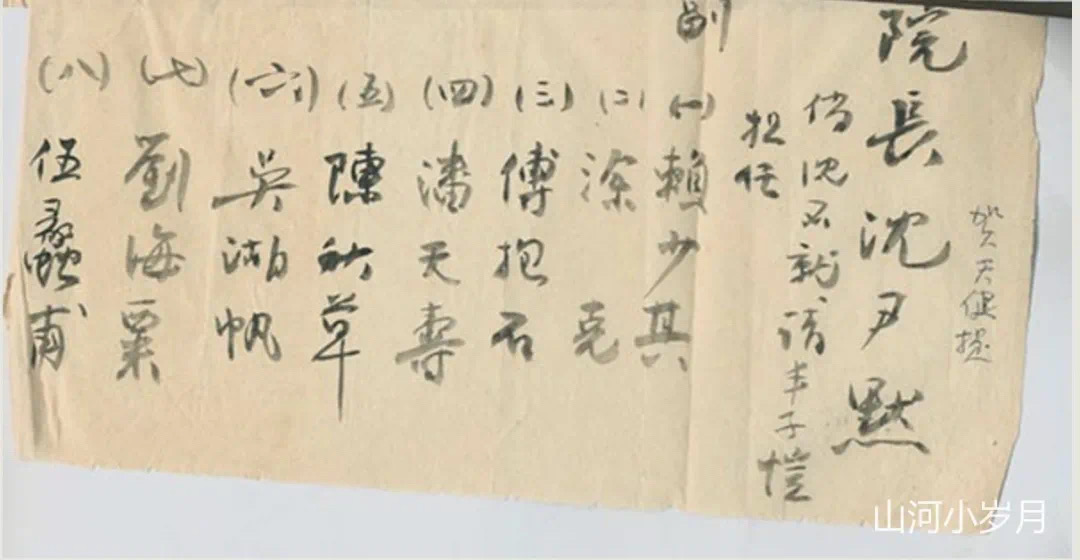 賀天健擬
院長沈尹默
倘沈不就、请丰子愷
担任
副
(一)賴少其
(二)涂克
(三)傅抱石
(四)潘天壽
(五)陳秋草
(六)吳湖帆
(七)劉海粟
(八)伍蠡甫
山河小岁月